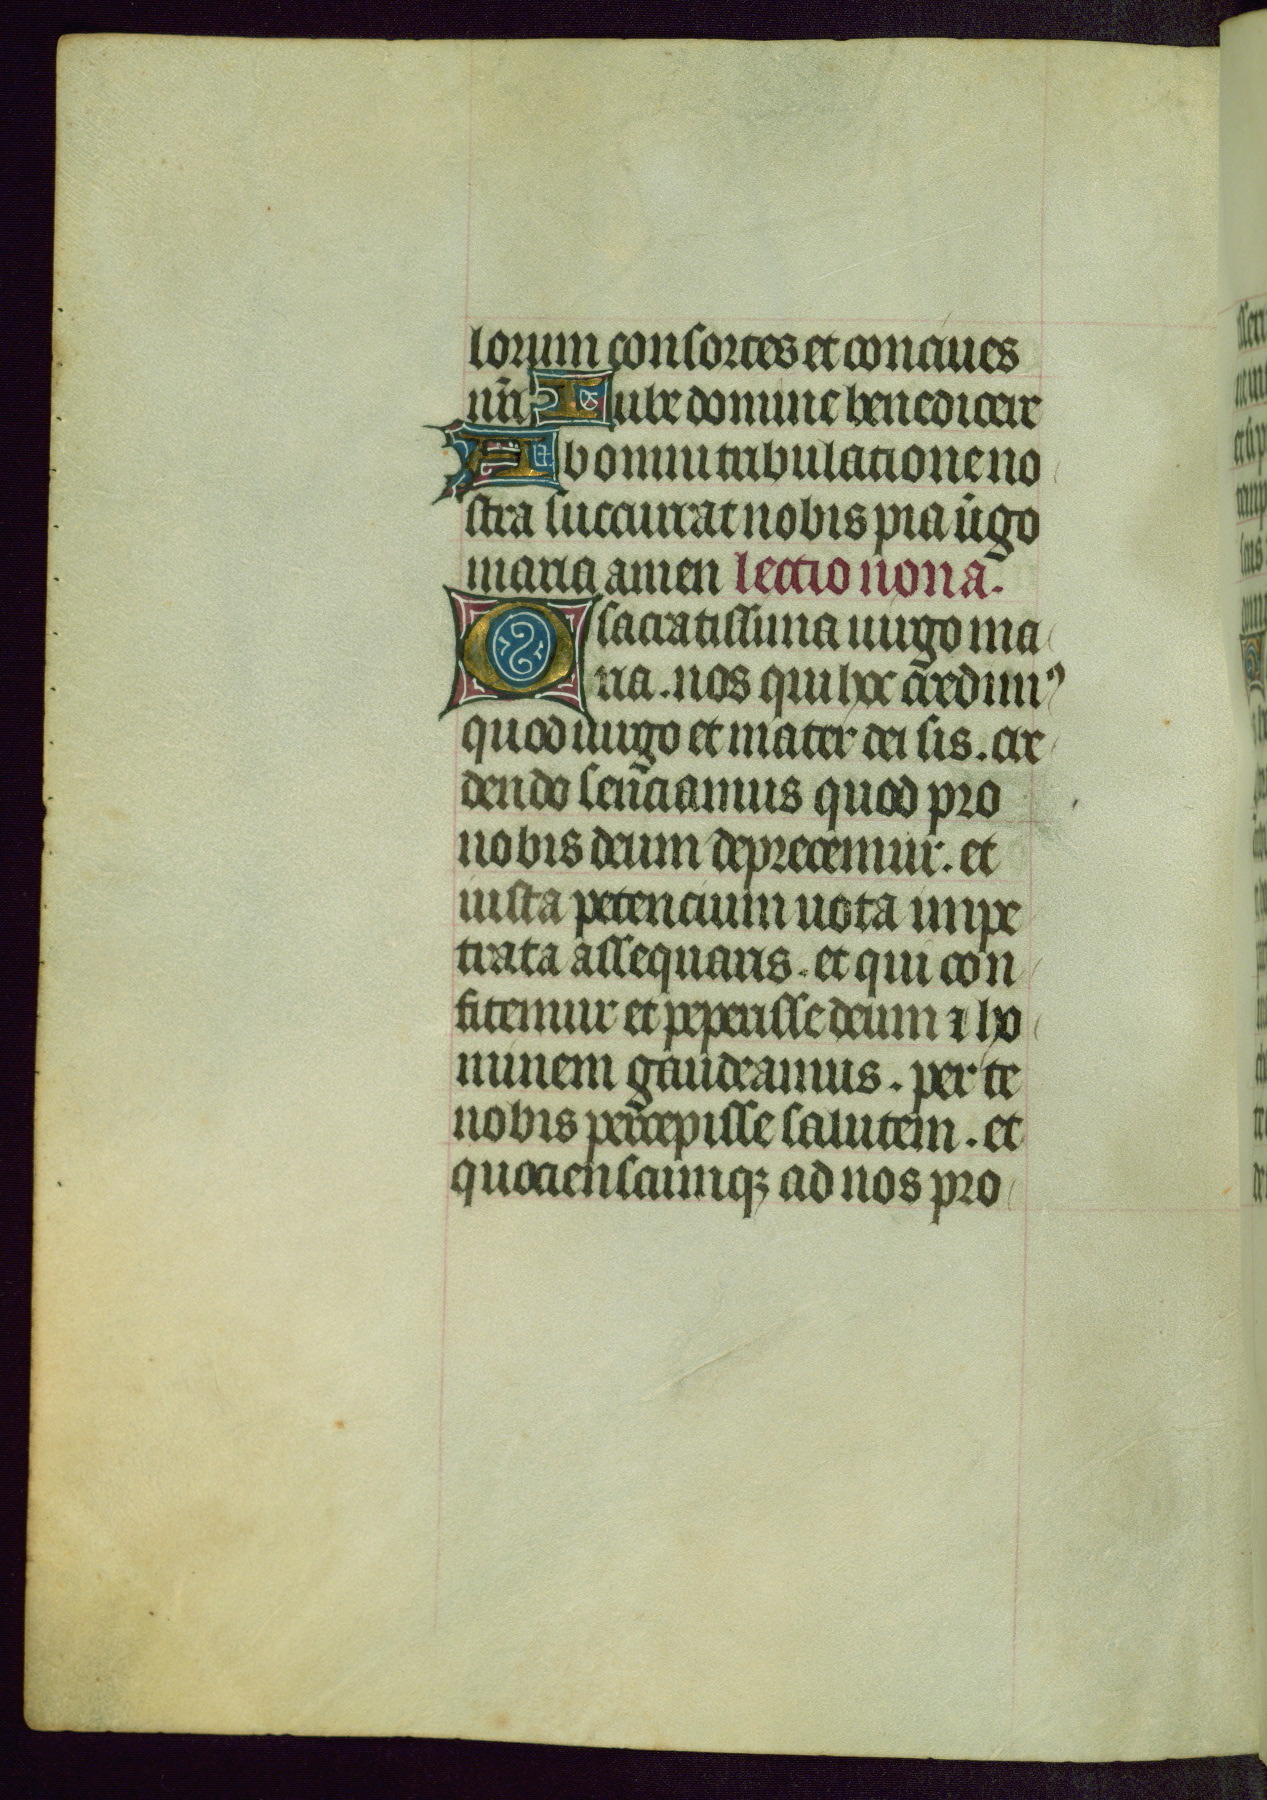 lorum consortes et conciues
nr̄i Iube domine benedicere
Ab omni tribulatione no
stra succurrat nobis pia u̅go
maria amen lectio nona.
O sacratissima uirgo ma
ria. nos qui hec c̄redimꝰ
quod uirgo et mater dei sis. cre
dendo sen̄ciamus quod pro
nobis deum deprecemur. et
iusta petencium uota impe
trata assequaris. et qui con
fitemur et peperisse deum ⁊ ho
minem gaudeamus. per te
nobis per̄cepisse salutem. et
quocienscumqꝫ ad nos pro